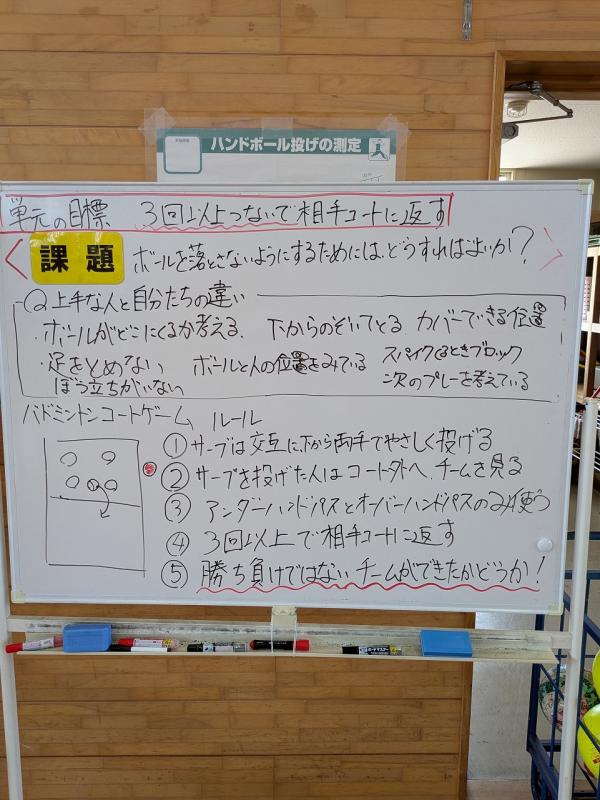 ハンドボール投げの測定
単元の目標 3回以上つないで相手コートに返す
課題 ボールを落とさないようにするためには、どうすればよいか?
Q上手な人と自分たちの違い
・ボールがどこにくるか考える 下からのぞいてとる カバーできる位置
・足をとめない ボールと人の位置をみている スパイクくるときブロック
ぼう立ちがいない 次のプレーを考えている
バドミントンコートゲーム ルール
① サーブは交互に、下から両手でやさしく投げる
② サーブを投げた人はコート外へ、チームを見る
③ アンダーハンドパスとオーバーハンドパスのみ使う
④ 3回以上で相手コートに返す
⑤ 勝ち負けではないチームができたかどうか!